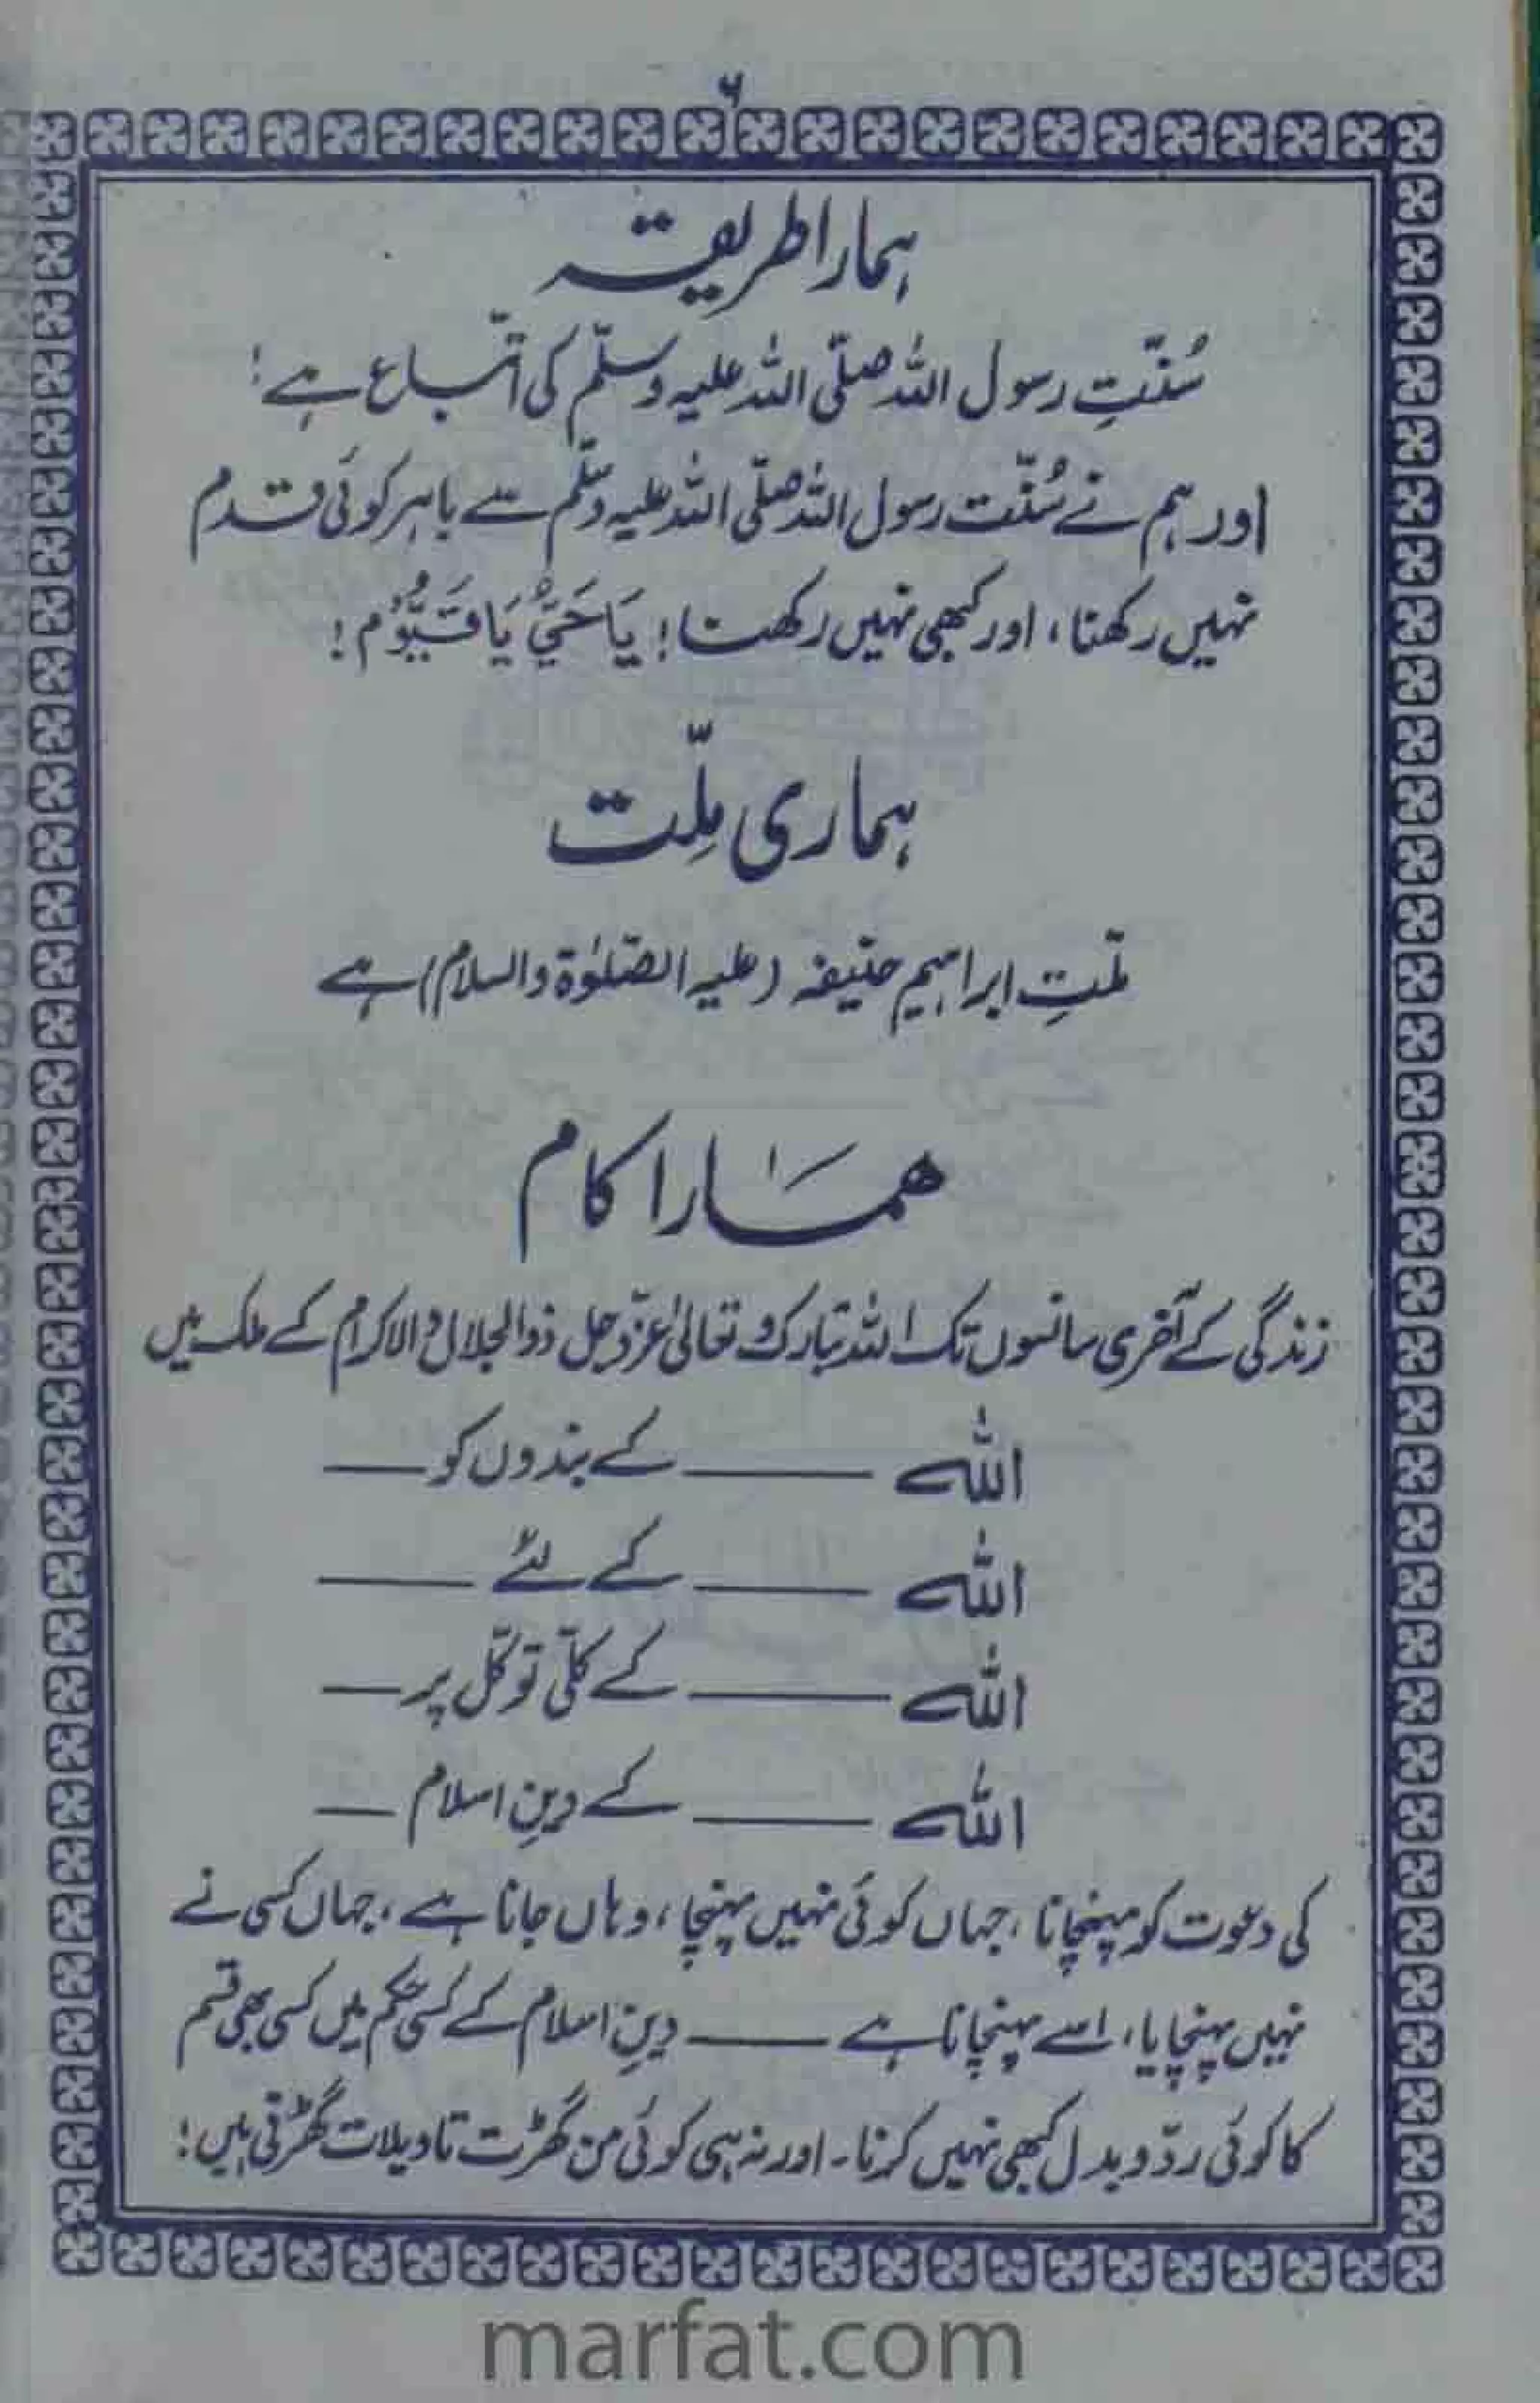 ۶
ہمارا طریقہ
سُنّتِ رسول اللہ صلّی اللہ علیہ وسلّم کی اتّباع ہے!
اور ہم نے سُنّت رسول اللہ صلّی اللہ علیہ وسلّم سے باہر کوئی قدم
نہیں رکھنا، اور کبھی نہیں رکھنا! یَا حَیُّ یَا قَیُّوْمُ!
ہماری مِلّت
ملّتِ ابراہیم حنیفہ (علیہ الصّلوٰۃ والسلام) ہے
ھمَارا کام
زندگی کے آخری سانسوں تک اللہ تبارک و تعالیٰ عزّ وجل ذوالجلال والاکرام کے ملک میں
اللہ کے ——— کے بندوں کو ——
اللہ کے ——— کے لئے ——
اللہ کے ——— کے کلّی توکّل پر ——
اللہ کے ——— کے دینِ اسلام —
کی دعوت کو پہنچانا، جہاں کوئی نہیں پہنچا، وہاں جانا ہے، جہاں کسی نے
نہیں پہنچایا، اسے پہنچانا ہے ——— دینِ اسلام کے کسی حکم میں کسی بھی قسم
کا کوئی ردّ و بدل کبھی نہیں کرنا۔ اور نہ ہی کوئی من گھڑت تاویلات گھڑنی ہیں!
marfat.com